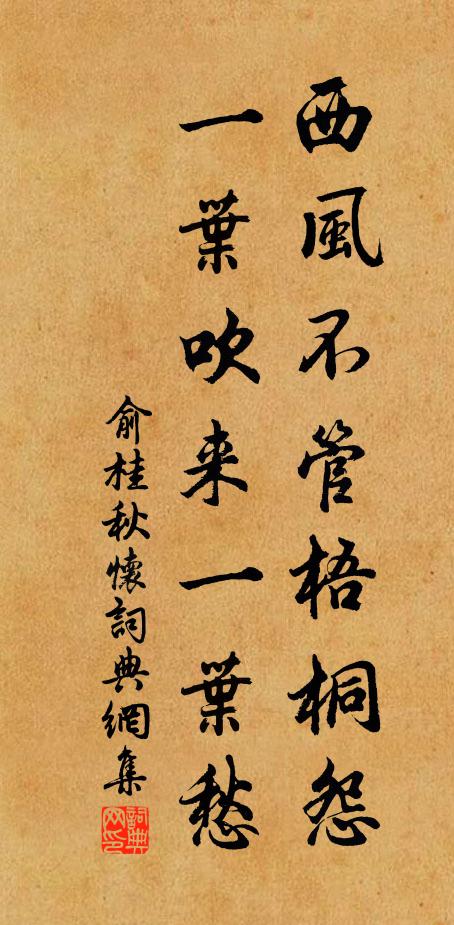 西風不管梧桐怨
一葉吹来一葉愁
俞桂秋懷詞典網集
詞典网印